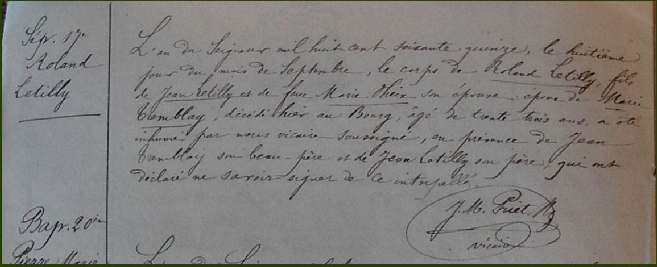 Sép. 17e
Roland
Letilly
L'an du Seigneur mil huit cent soixante quinze, le huitième
jour du mois de Septembre, le corps de Roland Letilly, fils
de Jean Letilly et de feue Marie son épouse; époux de Marie
Tremblay, décédé hier au Bourg, âgé de trente trois ans, a été
inhumé par nous vicaire soussigné, en présence de Jean
Tremblay son beau-père et de Jean Letilly son père, qui ont
déclaré ne savoir signer de ce interpellé.
J. M.
vicaire
Bap. 20e
Pierre Marie
L'an du Seigneur